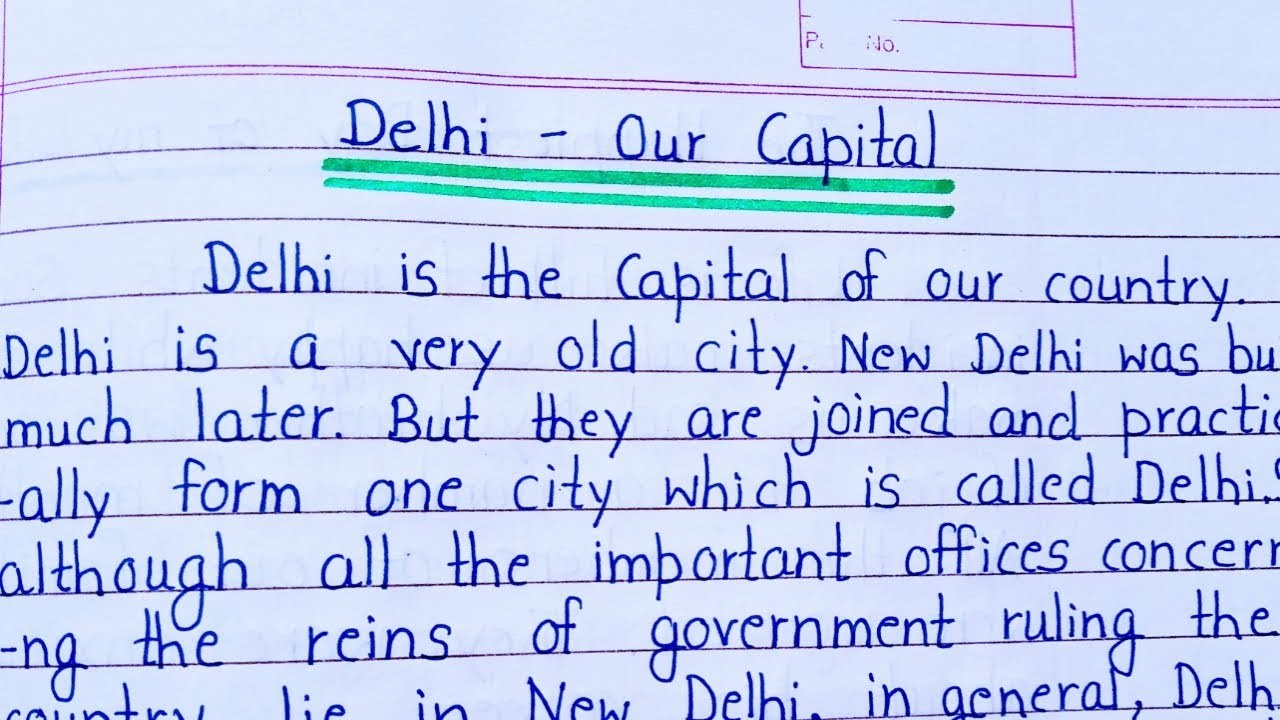 No.
Delhi - Our Capital
Delhi is the Capital of our country.
Delhi is a very old city. New Delhi was bu
much later. But they are joined and practic
-ally form one city which is called Delhi.
although all the important offices concern
-ng the reins of government ruling the
country lie in New Delhi, in general, Delh